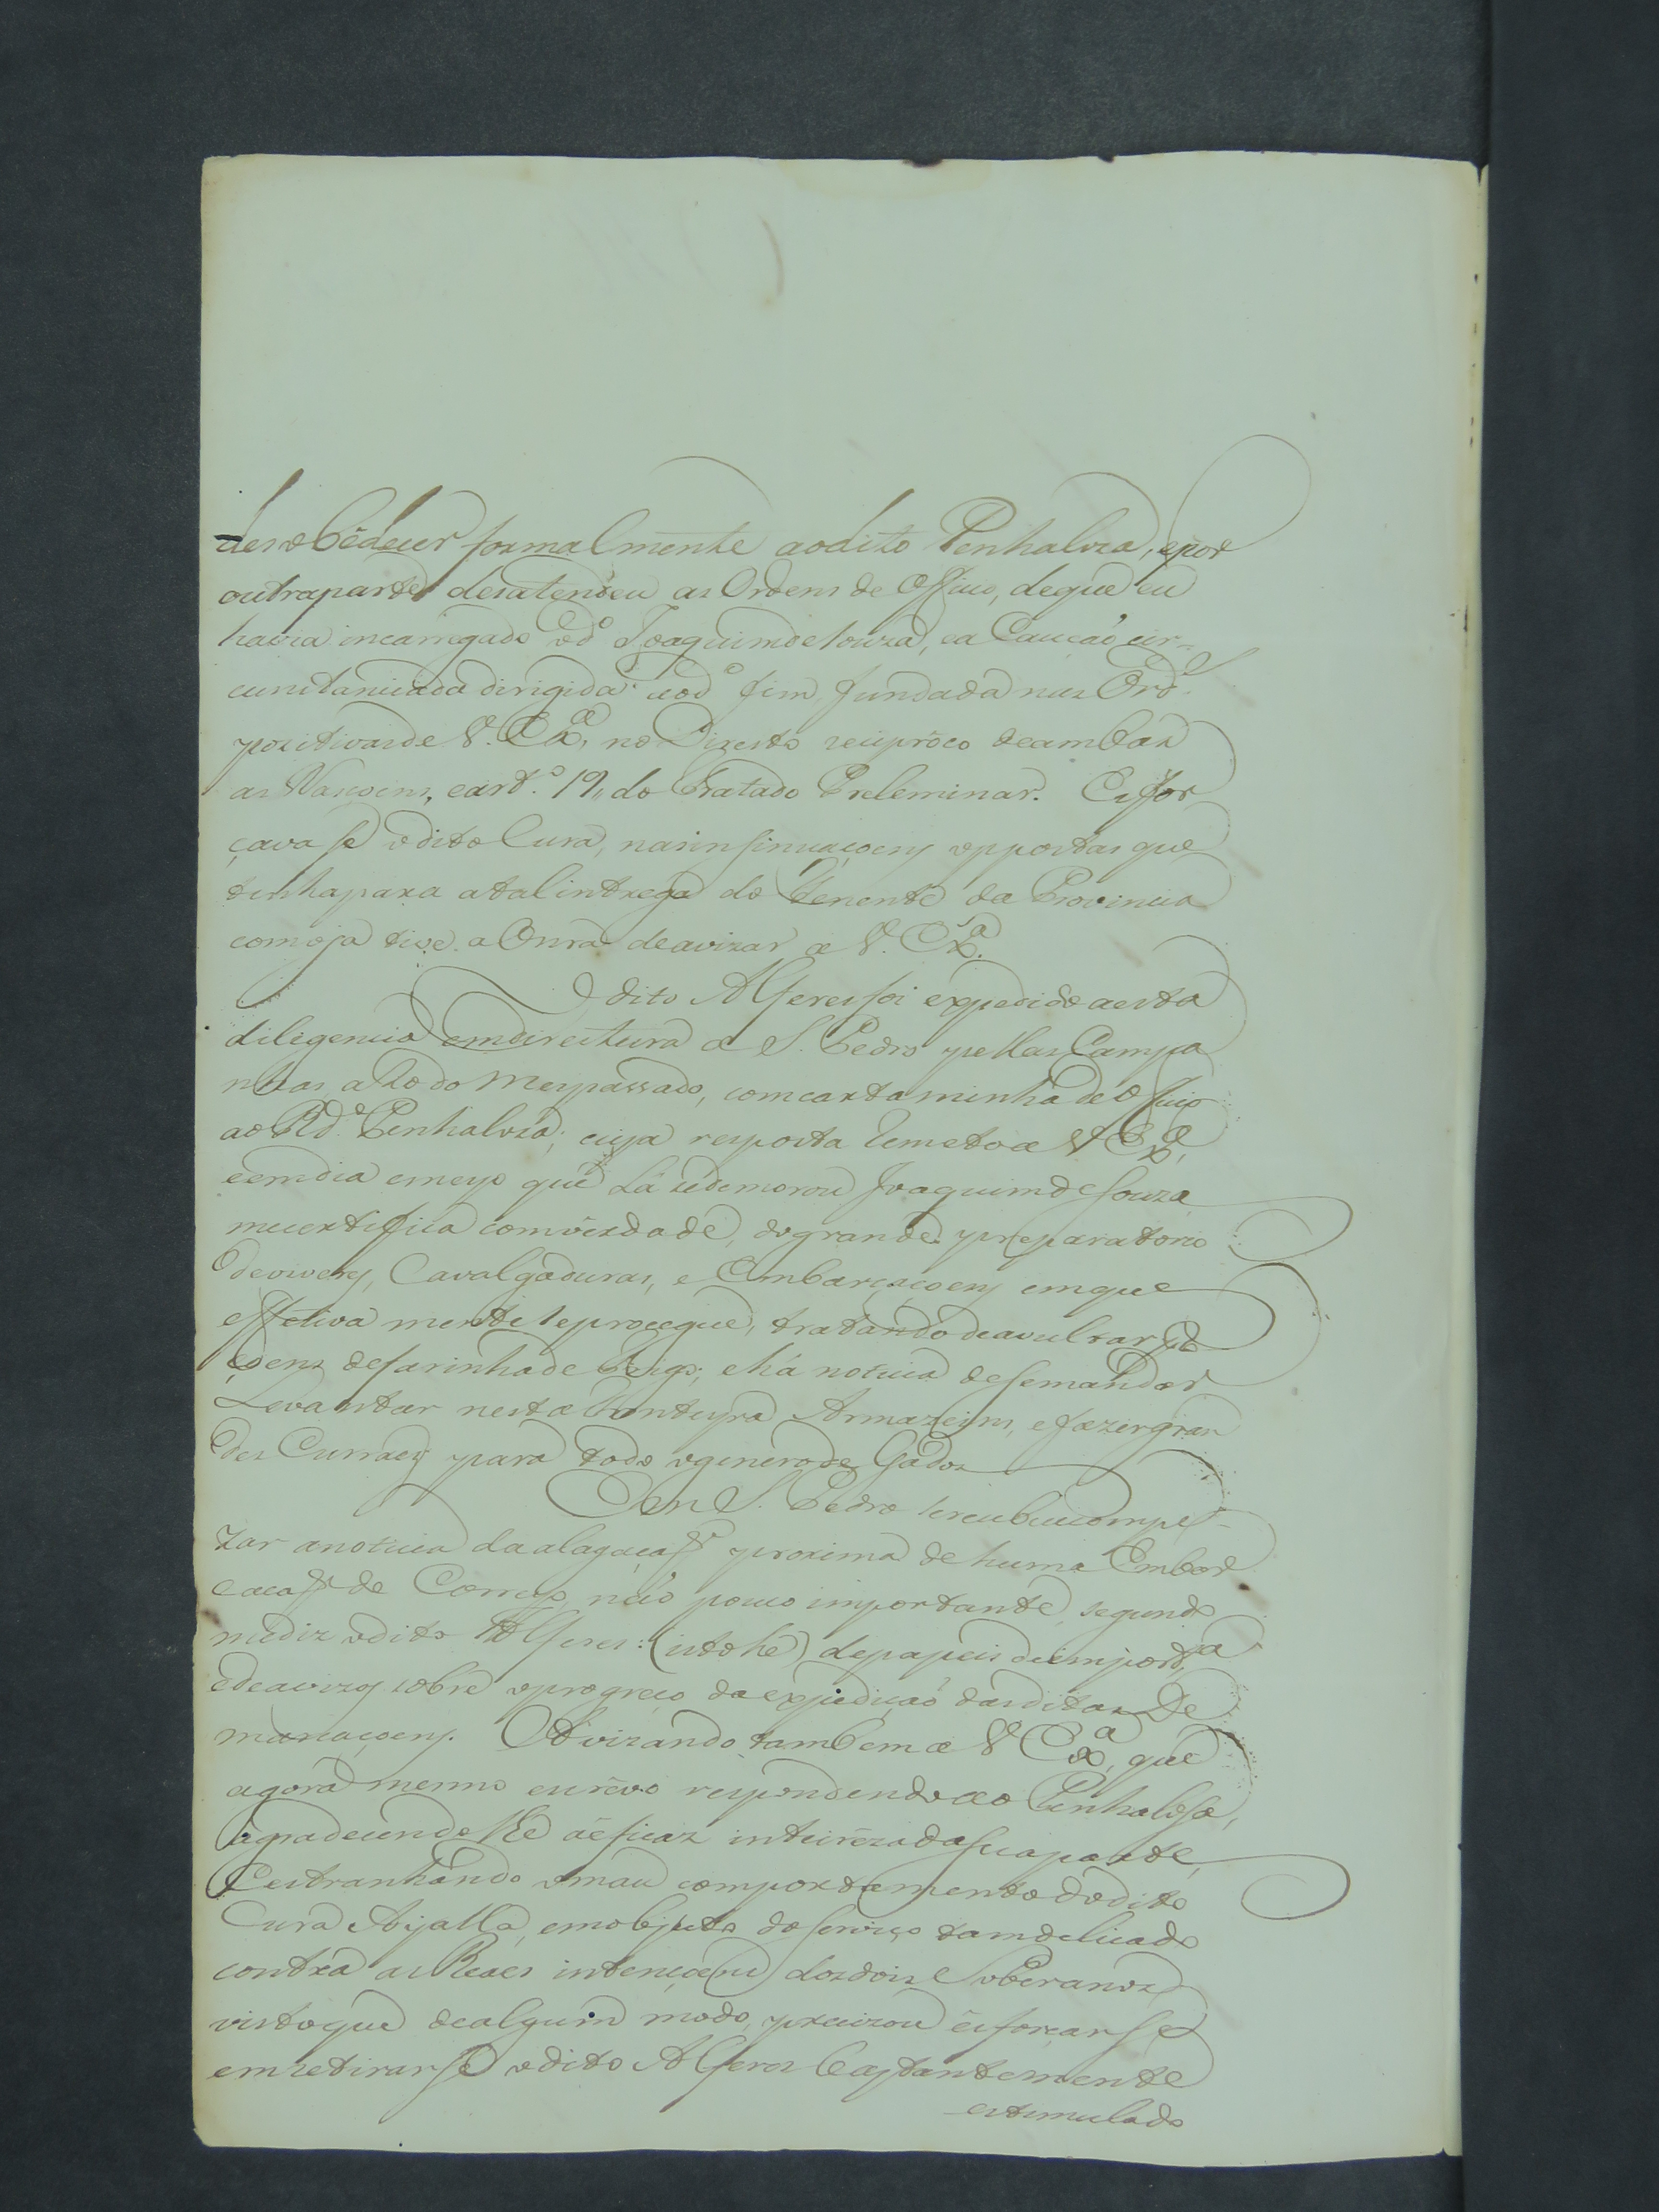 desobedecer formalmente aodito Penhalvza, epor
outraparte desatendeu as Ordens de Officio, deque eu
havia incarregado od.º Joaquimdesouza, ea Caução cir-
cunstanciada dirigida aod.º fim, fundada nas Ord.s
pozitivasde V. Ex.ª, no Direito reciproco deambas
as Naçoens, eart.º 19,, do Tratado Preleminar. Esfor
çava se odito Cura, nasinsinuaçoens oppostas que
tinhapara atalintrega do Tenente da Provincia
comoja tive a Onra deavizar a V. Ex.ª
O dito Alferes foi expedido aesta
diligencia emdireitura a S. Pedro pellas Campa
nhas do Mespassado, comcarta minha de Officio
ao Rd.º Penhalvza; cuja resposta remeto a V Ex.ª,
eemdia emeyo que Lá sedemorou Joaquimdesouza
mecertifica comverdade, dogrande preparatorio
deviveres, Cavalgaduras, e Embarcaçoens emque
effectiva mente seprocegue, tratando deavultar
defarinhade trigo; ehá noticia desemandar
Levantar nesta Fronteyra Armazeins, efazergran
des Curraes para todo ogenerode Gados
Em S. Pedro sereceubeucompe-
zar anoticia daalagação proxima de huma Embar
cação de Correyo, não pouco importante, segundo
mediz odito Alferes: (istohé) depapeis deimport.ª
edeavizos sobre oprogreço da expedição dasditas De
marcaçoens. Avizando tambem a V Ex.ª, que
agora mesmo escrevo respondendo ao Penhalvsa,
agradecendolhe aeficaz inteirezadasuaparte,
Eestranhando omau comportamento dodito
Cura Aijalla, emobjecto do serviço tamdelicado
contra as Reaes intençoens dosdois Soberanos,
vistoque dealgum modo, precizou esforçarse
emretirarse odito Alferes bastantemente
estimulado